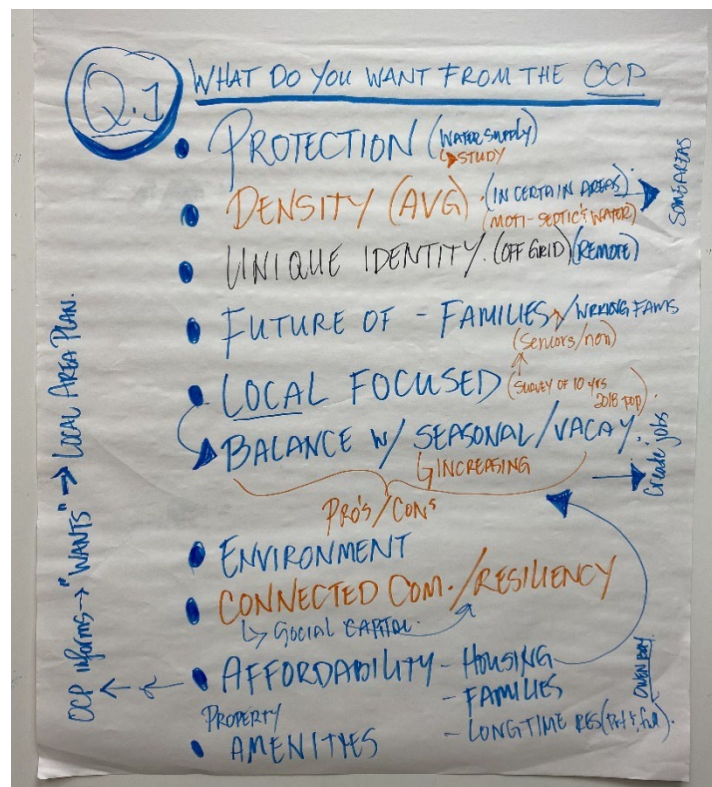 Q.1
WHAT DO YOU WANT FROM THE OCP
PROTECTION (WATER SUPPLY)
↳ STUDY
DENSITY (AVG) (IN CERTAIN AREAS) → SOME AREAS
(MOTI - SEPTIC & WATER)
UNIQUE IDENTITY. (OFF GRID) (REMOTE)
FUTURE OF - FAMILIES / WRKING FAMS
(Seniors/non)
LOCAL FOCUSED (SURVEY OF 10 yrs
2018 pop)
BALANCE W/ SEASONAL/VACAY.
↳ INCREASING
→ Create jobs
PRO'S/CONS
ENVIRONMENT
CONNECTED COM./RESILIENCY
↳ SOCIAL CAPITAL
AFFORDABILITY - HOUSING
- FAMILIES
- LONGTIME RES (Prt & full).
PROPERTY
AMENITIES
OCP informs → "WANTS" → LOCAL AREA PLAN.